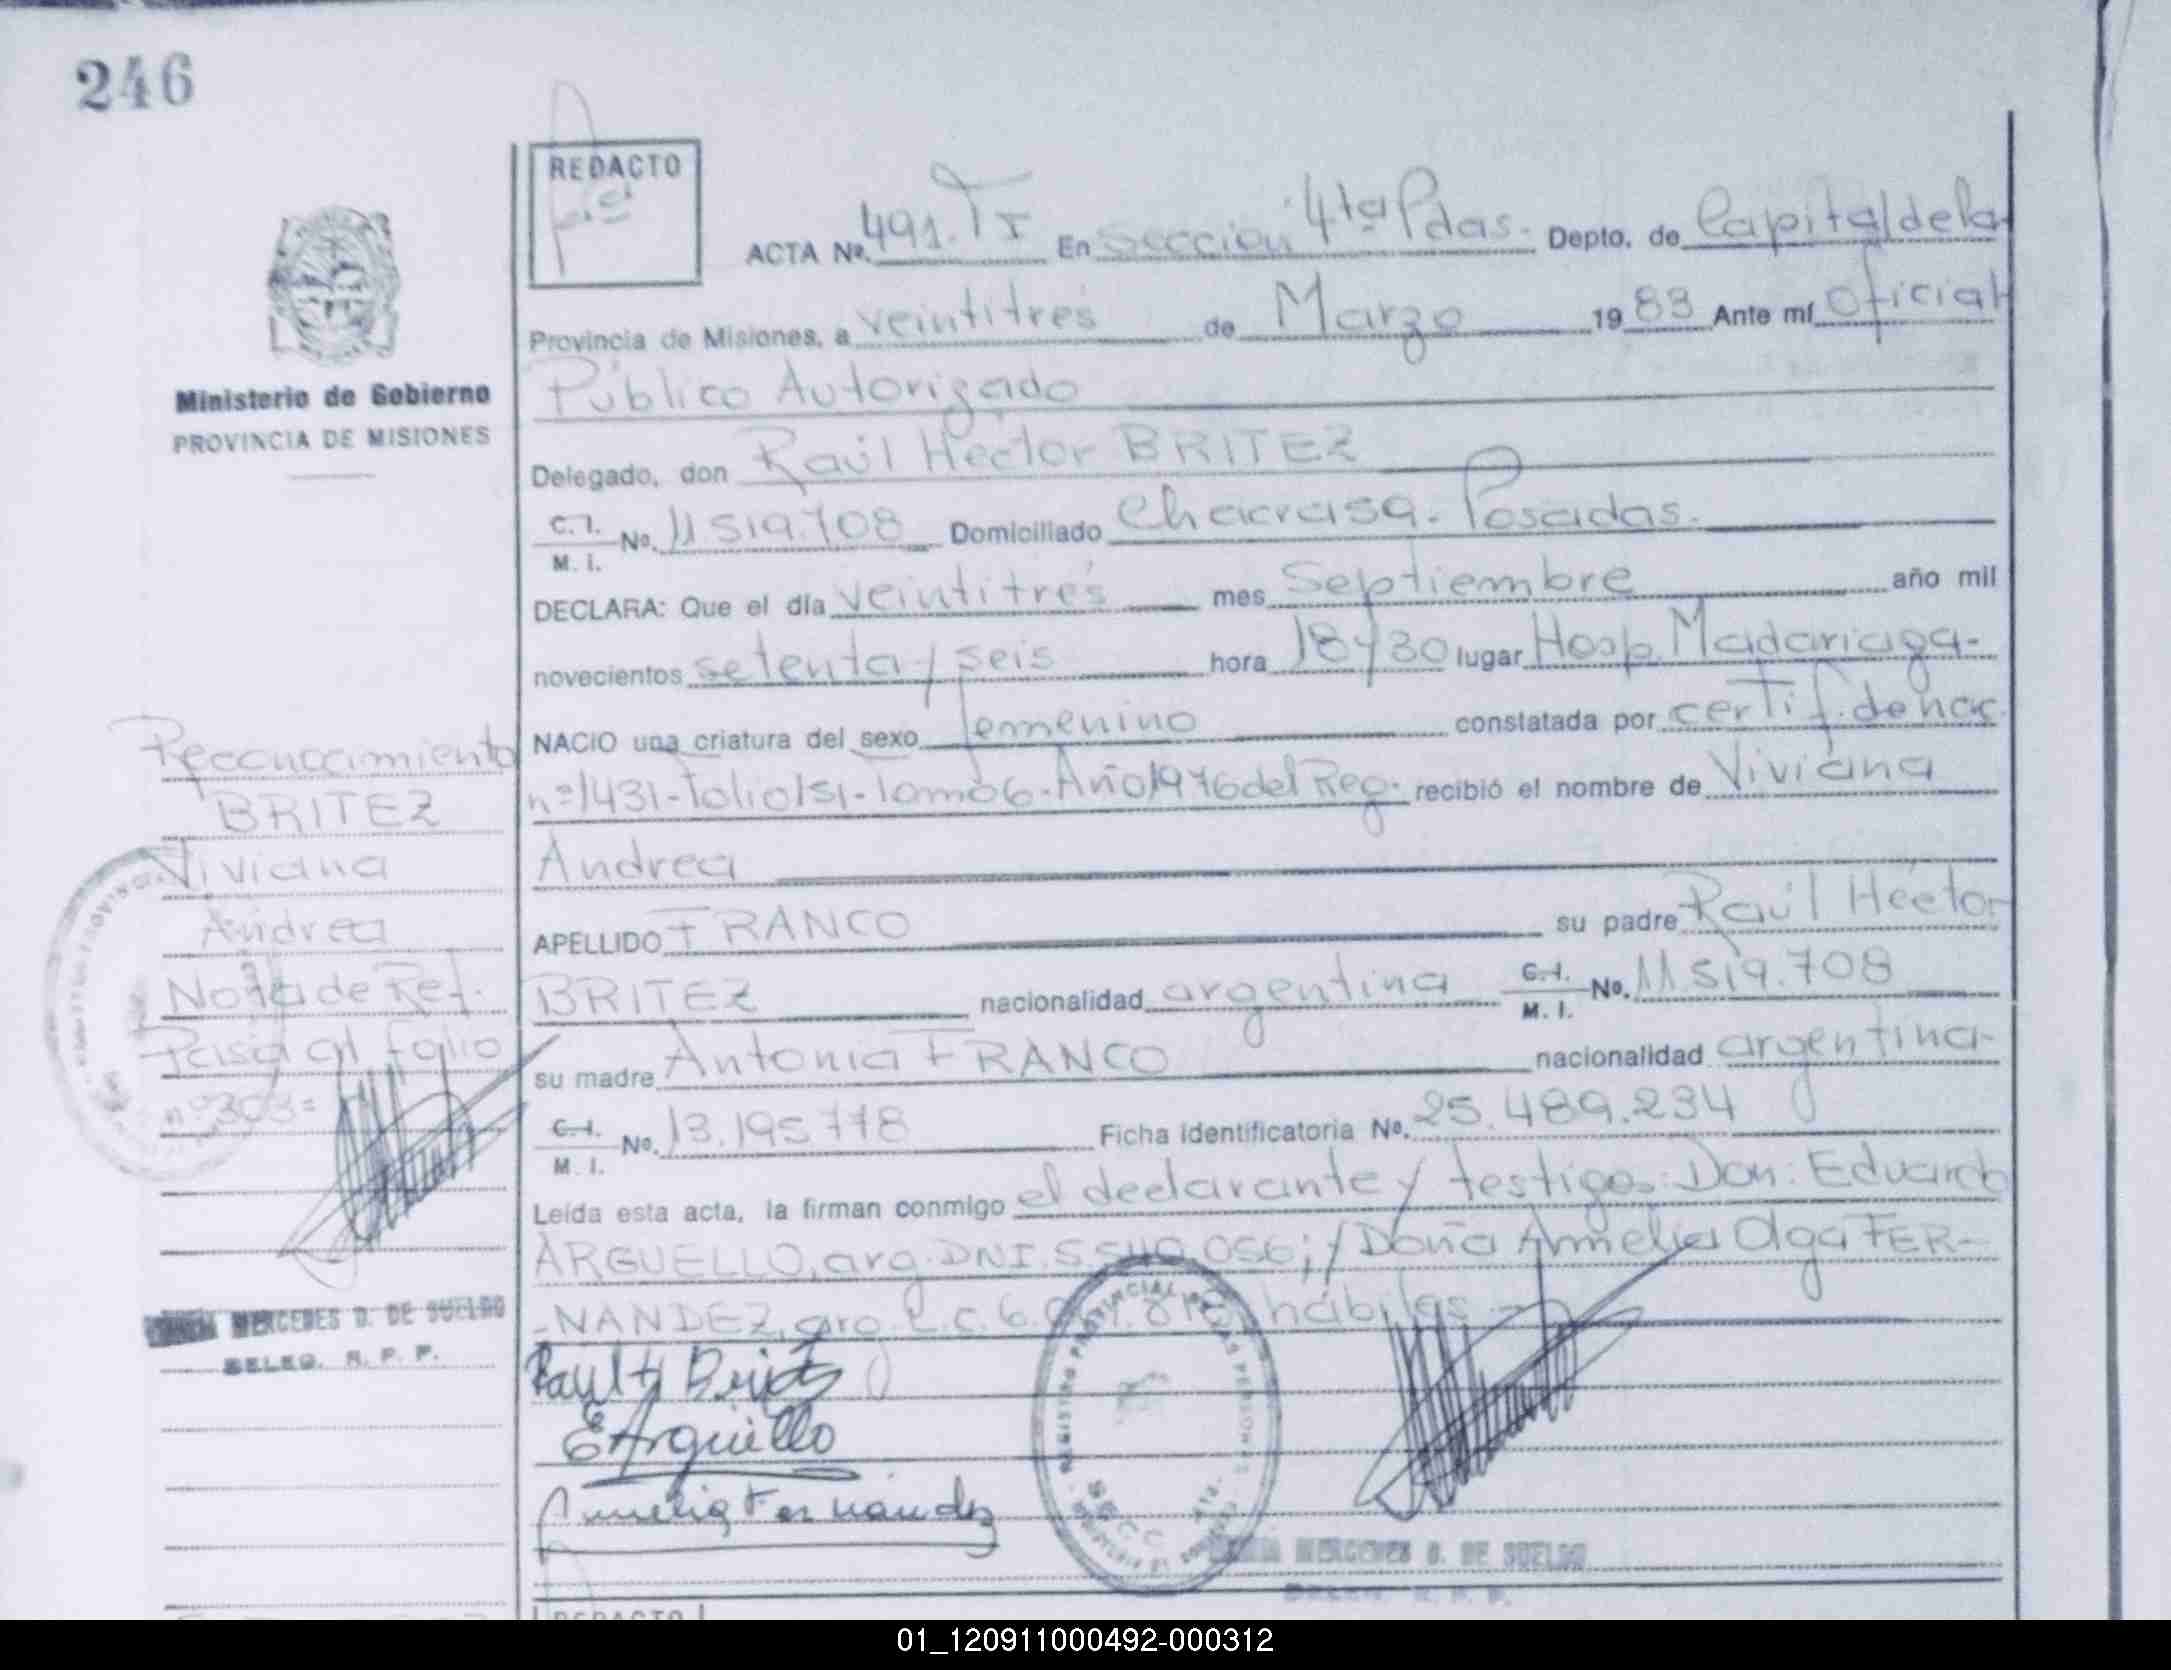 246
REDACTO
ACTA Nº. 491. TI En Sección 4ta Pdas. Depto. de Capital de la
Provincia de Misiones, a veintitrés de Marzo 1983 Ante mí Oficial
Público Autorizado
Ministerio de Gobierno
PROVINCIA DE MISIONES
Delegado, don Raúl Héctor BRITEZ
C. I. M. I. No. 11519.708 Domiciliado Posadas.
DECLARA: Que el día veintitrés mes Septiembre año mil
novecientos setenta y seis hora 18 y 30 lugar Hosp. Madariaga-
NACIO una criatura del sexo femenino constatada por certif. de nac.
nº1431-Folio151-Tomo6-Año1976 del Reg. recibió el nombre de Viviana
Andrea
APELLIDO FRANCO su padre Raúl Héctor
BRITEZ nacionalidad argentina C. I. M. I. No. 11519.708
su madre Antonia FRANCO nacionalidad argentina-
C. I. M. I. No. 13.195.778 Ficha identificatoria No. 25.489.234
Leída esta acta, la firman conmigo el declarante y testigos: Don: Eduardo
ARGUELLO, arg. DNI. 5.540.056; y Doña Amelia Olga FER-
-NANDEZ, arg. L.C. 6. hábiles
Reconocimiento
BRITEZ
Viviana
Andrea
Nota de Ref.
Pasa al folio
nº303=
MERCEDES D. DE SUELDO
DELEG. R. P. P.
Raul H Britez
EArguello
Amelia Fernandez
REGISTRO PROVINCIAL DE LAS PERSONAS
SECC 4ta.
MERCEDES D. DE SUELDO
DELEG. R. P. P.
REDACTO
01_120911000492-000312